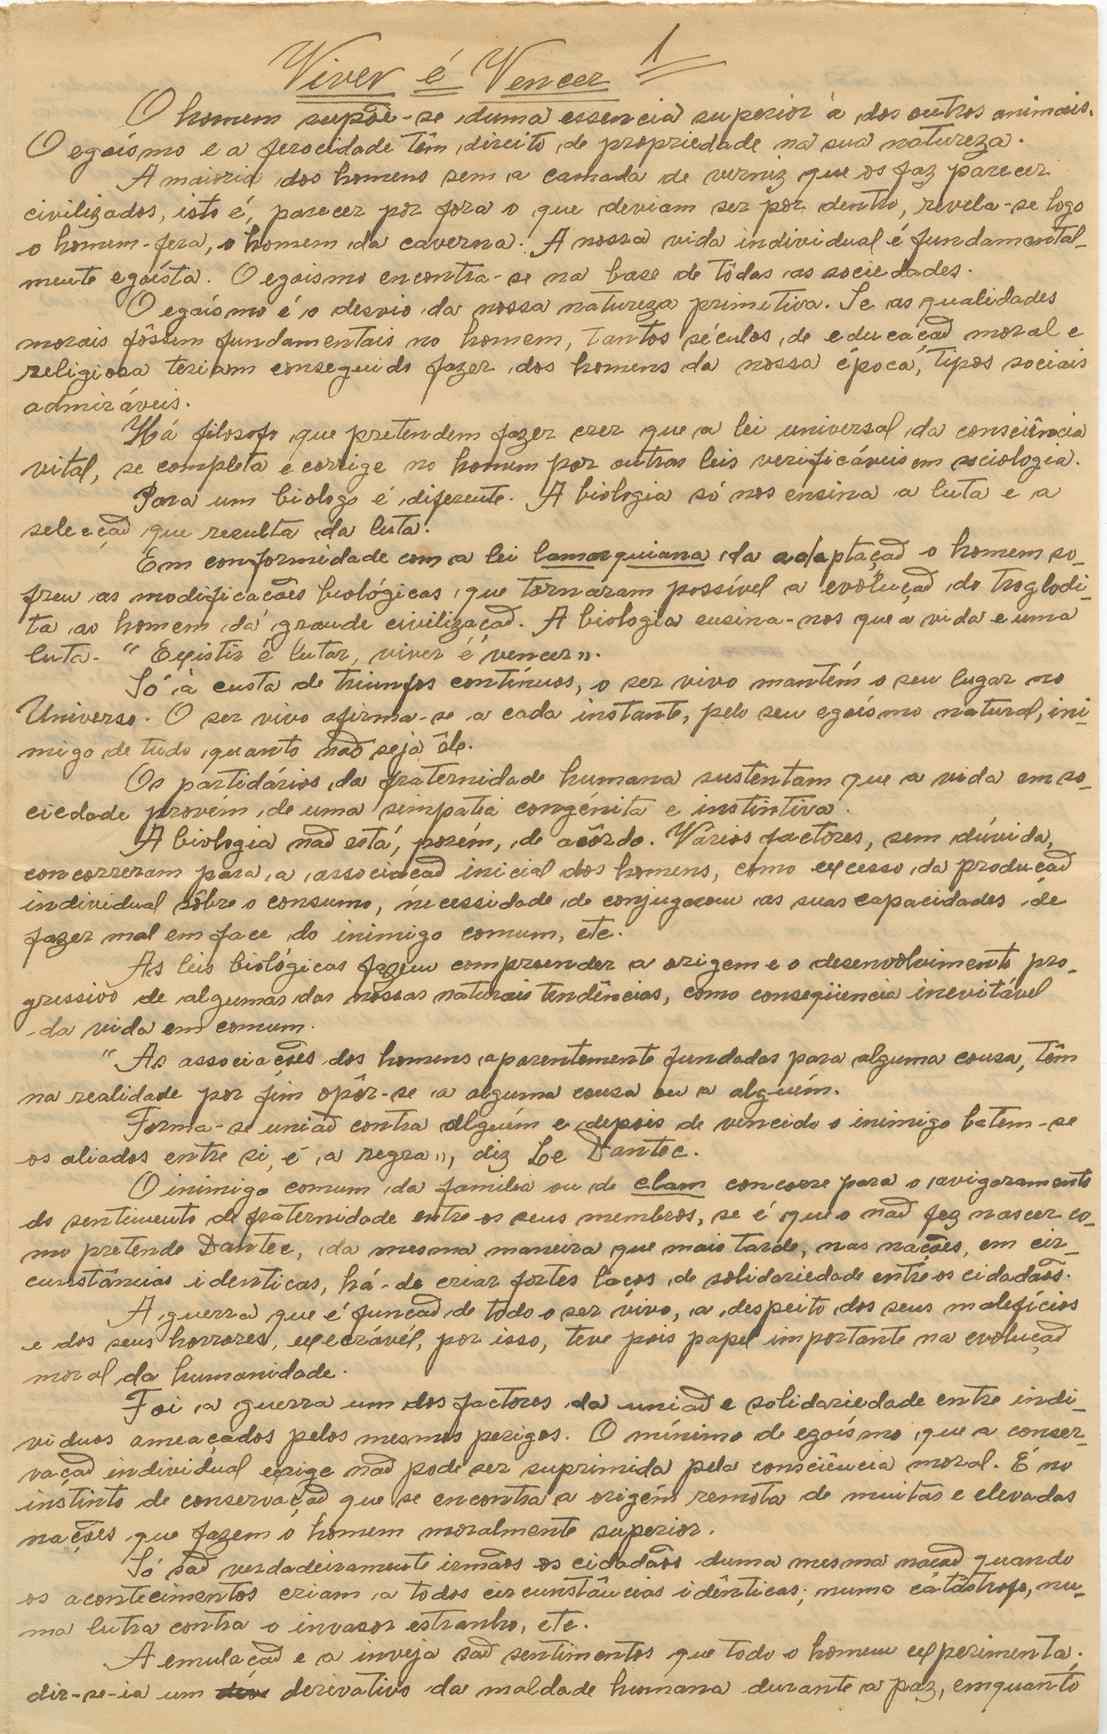 Viver é Vencer 1
O homem supõe-se duma essencia superior à dos outros animais.
O egoísmo e a ferocidade têm direito de propriedade na sua natureza.
A maioria dos homens sem a camada de verniz que os faz parecer
civilizados, isto é, parecer por fora o que deviam ser por dentro, revela-se logo
o homem-fera, o homem da caverna. A nossa vida individual é fundamental-
mente egoísta. O egoismo encontra-se na base de tôdas as sociedades.
O egoísmo é o desvio da nossa natureza primitiva. Se as qualidades
morais fôssem fundamentais no homem, tantos séculos de educação moral e
religiosa teriam conseguido fazer dos homens da nossa época, tipos sociais
admiráveis.
Há filosofo que pretendem fazer crer que a lei universal da consciência
vital, se completa e corrige no homem por outras leis verificáveis em sociologia.
Para um biologo é diferente. A biologia só nos ensina a luta e a
selecção que resulta da luta.
Em conformidade com a lei lamarquiana da adaptação o homem so-
freu as modificacões biológicas que tornáram possível a evolução do troglodi-
ta ao homem da grande civilização. A biologia ensina-nos que a vida e uma
luta. "Existir é lutar, viver é vencer".
Só à custa de triunfos contínuos, o ser vivo mantém o seu lugar no
Universo. O ser vivo afirma-se a cada instante, pelo seu egoísmo natural, ini-
migo de tudo quanto não seja êle.
Os partidários da fraternidade humana sustentam que a vida em so-
ciedade provem de uma simpatia congénita e instintiva.
A biologia não está, porém, de acôrdo. Vários factores, sem dúvida,
concorreram para a associação inicial dos homens, como excesso da produção
individual sôbre o consumo, necessidade de conjugarem as suas capacidades de
fazer mal em face do inimigo comum, etc.
As leis biológicas fazem compreender a origem e o desenvolvimento pro-
gressivo de algumas das nossas naturais tendências, como conseqüencia inevitável
da vida em comum.
"As associações dos homens aparentemente fundadas para alguma cousa, têm
na realidade por fim opôr-se a alguma cousa ou a alguém.
Forma-se união contra alguém e depois de vencido o inimigo batem-se
os aliados entre si, é a regra", diz Le Dantec.
O inimigo comum da familia ou de clam concorre para o avigoramento
do sentimento de fraternidade entre os seus membros, se é que o não fez nascer co-
mo pretende Dantec, da mesma maneira que mais tarde, nas nações, em cir-
cunstâncias identicas, há-de criar fortes laços de solidariedade entre os cidadãos.
A guerra que é função de todo o ser vivo, a despeito dos seus malefícios
e dos seus horrores, execrável, por isso, teve pois papel importante na evolução
moral da humanidade.
Foi a guerra um dos factores da união e solidariedade entre indi-
viduos ameaçados pelos mesmos perigos. O mínimo de egoísmo que a conser-
vação individual exige não pode ser suprimida pela consciência moral. É no
instinto de conservação que se encontra a origem remota de muitas e elevadas
nações que fazem o homem moralmente superior.
Só são verdadeiramente irmãos os cidadãos duma mesma nação quando
os acontecimentos criam a todos circunstâncias idênticas; numa catástrofe, nu-
ma lutra contra o invasor estranho, etc.
A emulação e a inveja são sentimentos que todo o homem experimenta.
dir-se-ia um derivativo da maldade humana durante a paz, emquanto